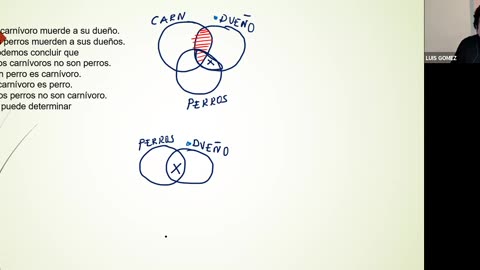 carnívoro muerde a su dueño.
perros muerden a sus dueños.
demos concluir que
os carnívoros no son perros.
n perro es carnívoro.
carnívoro es perro.
os perros no son carnívoro.
puede determinar
CARN
DUEÑO
X
PERROS
PERROS
DUEÑO
X
LUIS GOMEZ